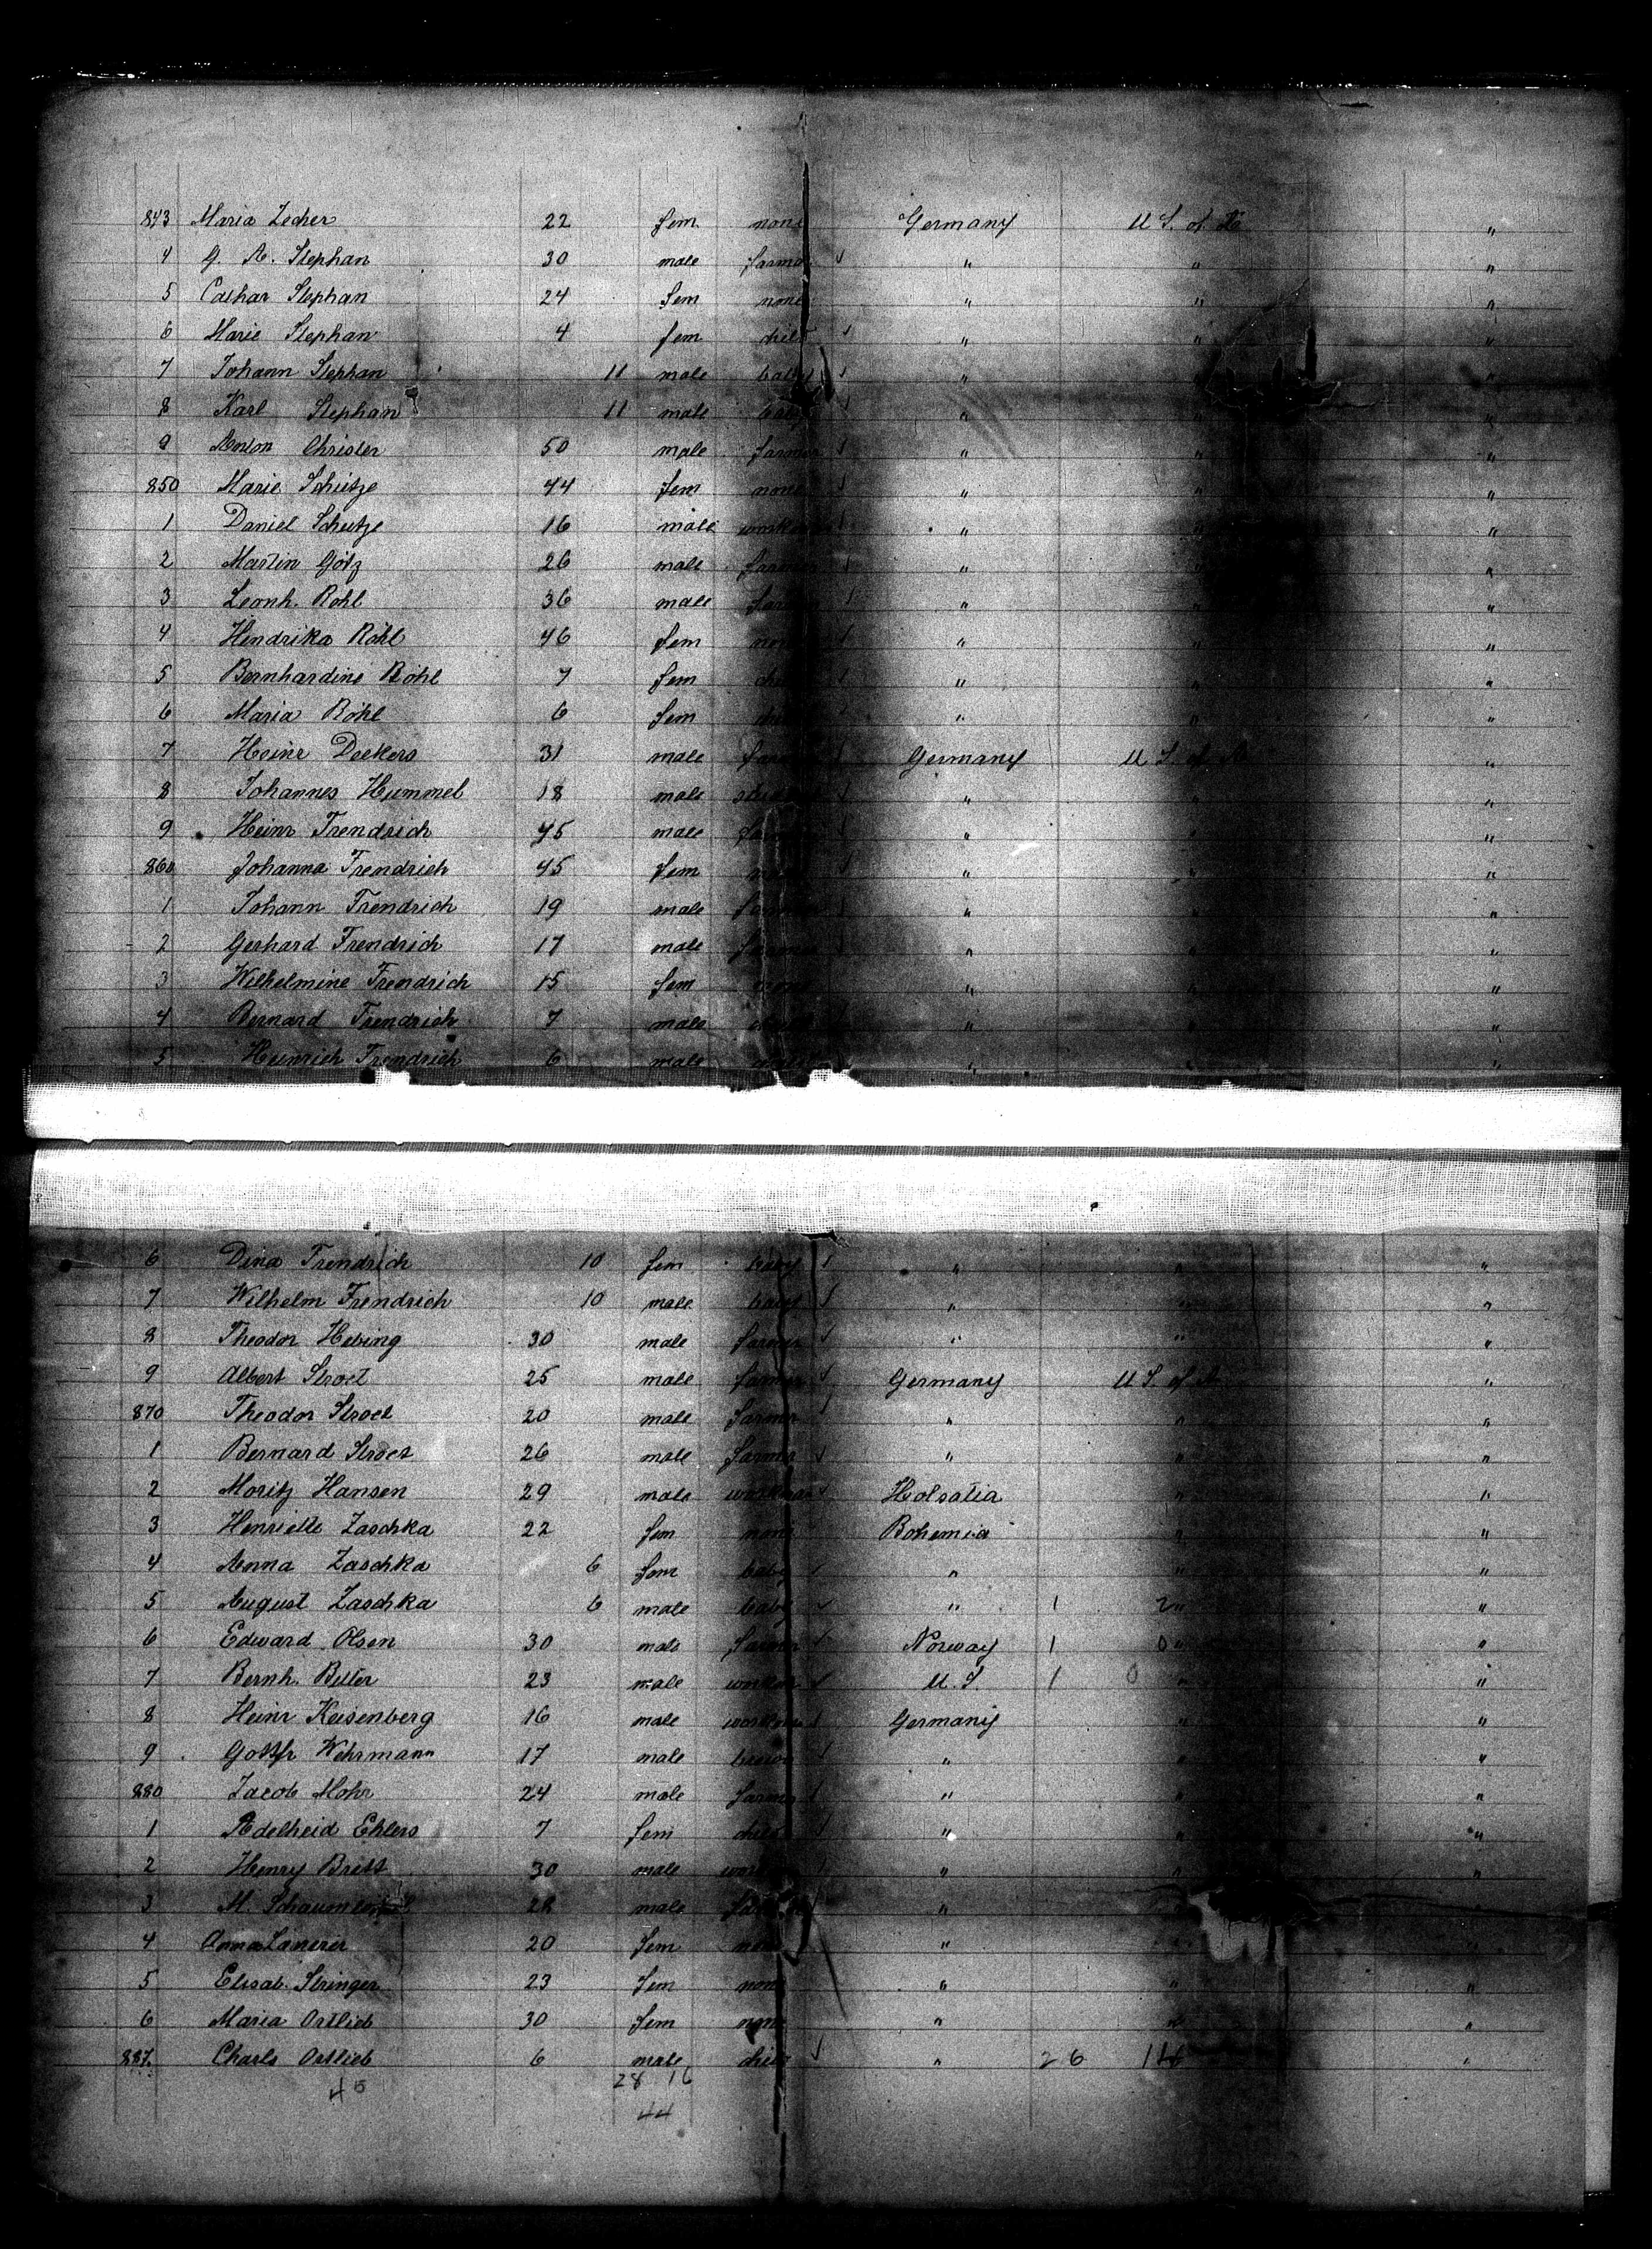 843 Maria Zocher 22 fem none Germany U S. of A "
4 G. A. Stephan 30 male farmer " " "
5 Cathar Stephan 24 fem none " " "
6 Marie Stephan 4 fem child " " "
7 Johann Stephan 11 male baby " " "
8 Karl Stephan 11 male baby " " "
9 Anton Christen 50 male farmer " " "
850 Marie Schütze 44 fem none " " "
1 Daniel Schütze 16 male workm " " "
2 Martin Götz 26 male farmer " " "
3 Leonh. Röhl 36 male farmer " " "
4 Hendrika Röhl 46 fem none " " "
5 Bernhardine Röhl 7 fem child " " "
6 Maria Röhl 6 fem child " " "
7 Heinr Deekers 31 male farmer Germany U S. of A "
8 Johannes Hummel 18 male student " " "
9 Heinr Frendrich 45 male farmer " " "
860 Johanna Frendrich 45 fem none " " "
1 Johann Frendrich 19 male farmer " " "
2 Gerhard Frendrich 17 male farmer " " "
3 Wilhelmine Frendrich 15 fem none " " "
4 Bernard Frendrich 7 male child " " "
5 Heinrich Frendrich 6 male child " " "
6 Dina Frendrich 10 fem baby " " "
7 Wilhelm Frendrich 10 male baby " " "
8 Theodor Hebing 30 male farmer " " "
9 Albert Stroet 25 male farmer Germany U S. of A "
870 Theodor Stroet 20 male farmer " " "
1 Bernard Stroet 26 male farmer " " "
2 Moritz Hansen 29 male workman Holsatia " "
3 Henriette Zaschka 22 fem none Bohemia " "
4 Anna Zaschka 6 fem baby " " "
5 August Zaschka 6 male baby " 1 2 " "
6 Edward Olsen 30 male farmer Norway 1 0 " "
7 Bernh. Beller 23 male workm U. S. 1 0 " "
8 Heinr Keisenberg 16 male workm Germany " "
9 Gottfr Wehrmann 17 male " " "
880 Jacob Mohr 24 male farmer " " "
1 Adelheid Ehlers 7 fem child " " "
2 Henry Brett 30 male workm " " "
3 M. 28 male farmer " " "
4 Anna 20 fem none " " "
5 Elisab. Stringer 23 fem none " " "
6 Maria Ortlieb 30 fem none " " "
887. Charls Ortlieb 6 male child " 26 "
45 28 16
44